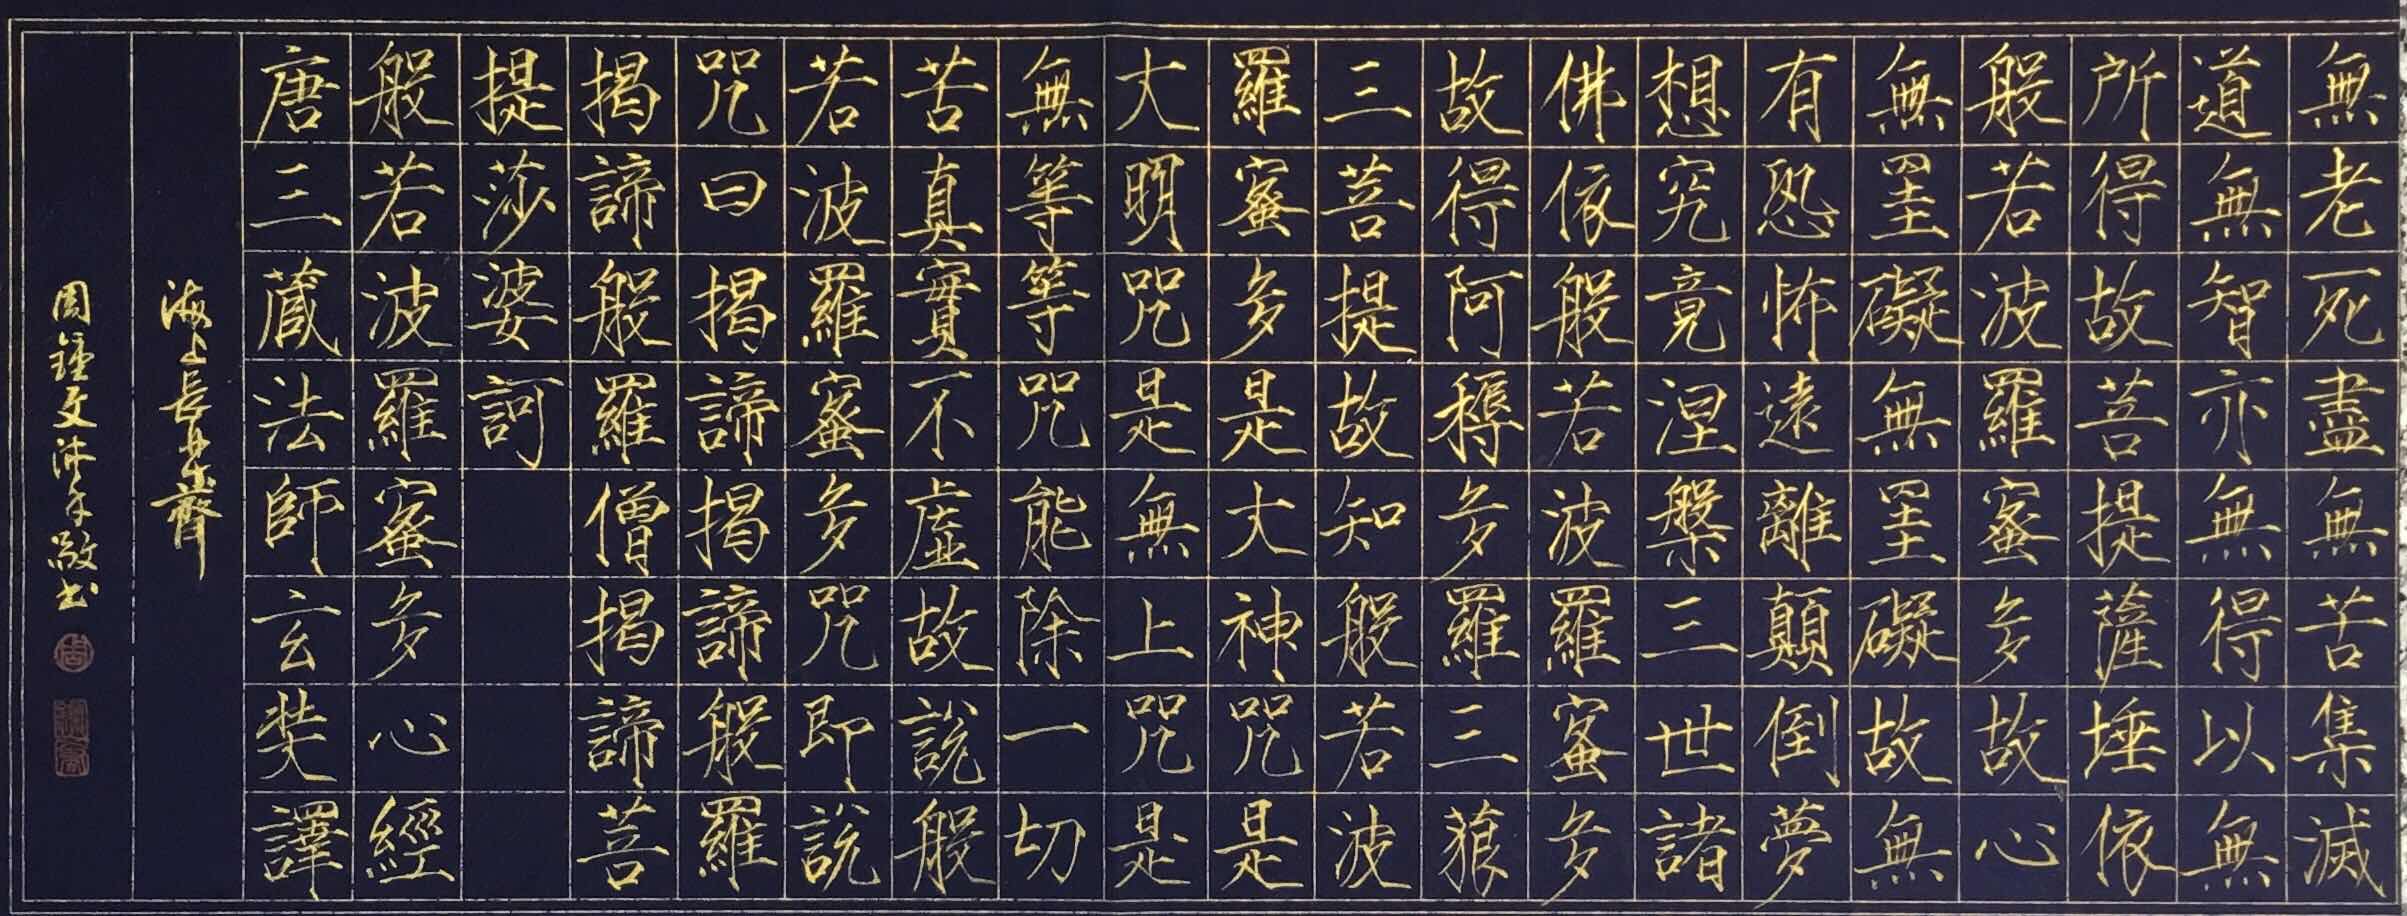 無老死盡無苦集滅
道無智亦無得以無
所得故菩提薩埵依
般若波羅蜜多故心
無罣礙無罣礙故無
有恐怖遠離顛倒夢
想究竟涅槃三世諸
佛依般若波羅蜜多
故得阿耨多羅三藐
三菩提故知般若波
羅蜜多是大神咒是
大明咒是無上咒是
無等等咒能除一切
苦真實不虛故說般
若波羅蜜多咒即說
咒曰揭諦揭諦般羅
揭諦般羅僧揭諦菩
提莎婆訶
般若波羅蜜多心經
唐三藏法師玄奘譯
海上長樂齋
周鍾文沐手敬書
周